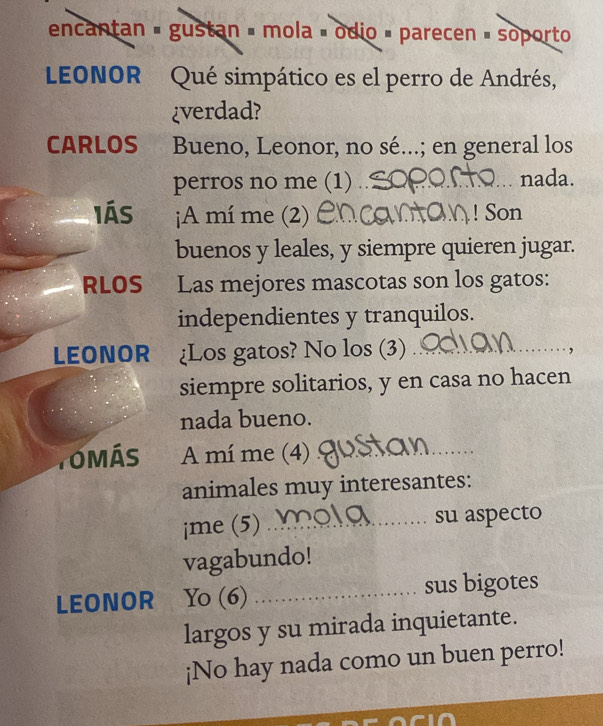 encantan ▪ gustan ▪ mola ▪ odio ▪ parecen ▪ soporto
LEONOR Qué simpático es el perro de Andrés,
¿verdad?
CARLOS Bueno, Leonor, no sé...; en general los
perros no me (1) soporto nada.
MÁS ¡A mí me (2) encantan! Son
buenos y leales, y siempre quieren jugar.
RLOS Las mejores mascotas son los gatos:
independientes y tranquilos.
LEONOR ¿Los gatos? No los (3) odian,
siempre solitarios, y en casa no hacen
nada bueno.
TOMÁS A mí me (4) gustan
animales muy interesantes:
¡me (5) mola su aspecto
vagabundo!
LEONOR Yo (6) ............ sus bigotes
largos y su mirada inquietante.
¡No hay nada como un buen perro!